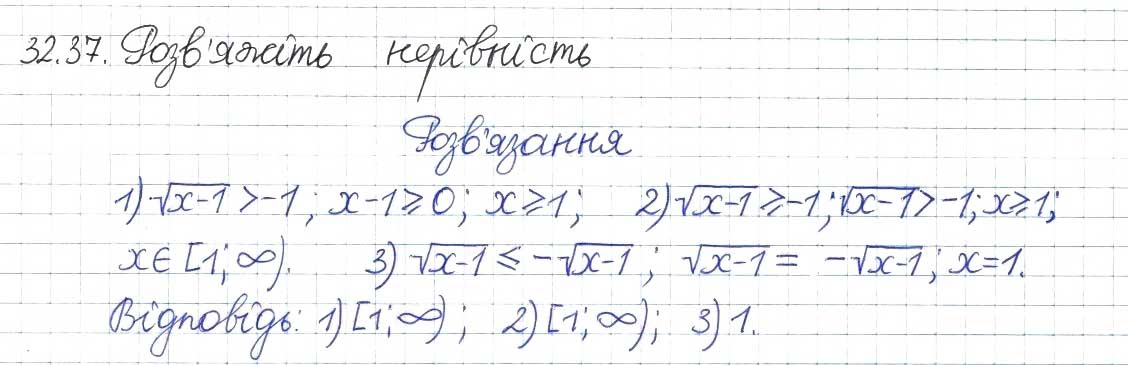 32.37. Розв'яжіть нерівність
Розв'язання
1) √x-1 > -1; x-1 ≥ 0; x ≥ 1; 2) √x-1 ≥ -1; √x-1 > -1; x ≥ 1;
x ∈ [1; ∞). 3) √x-1 ≤ -√x-1; √x-1 = -√x-1; x=1.
Відповідь: 1) [1; ∞); 2) [1; ∞); 3) 1.